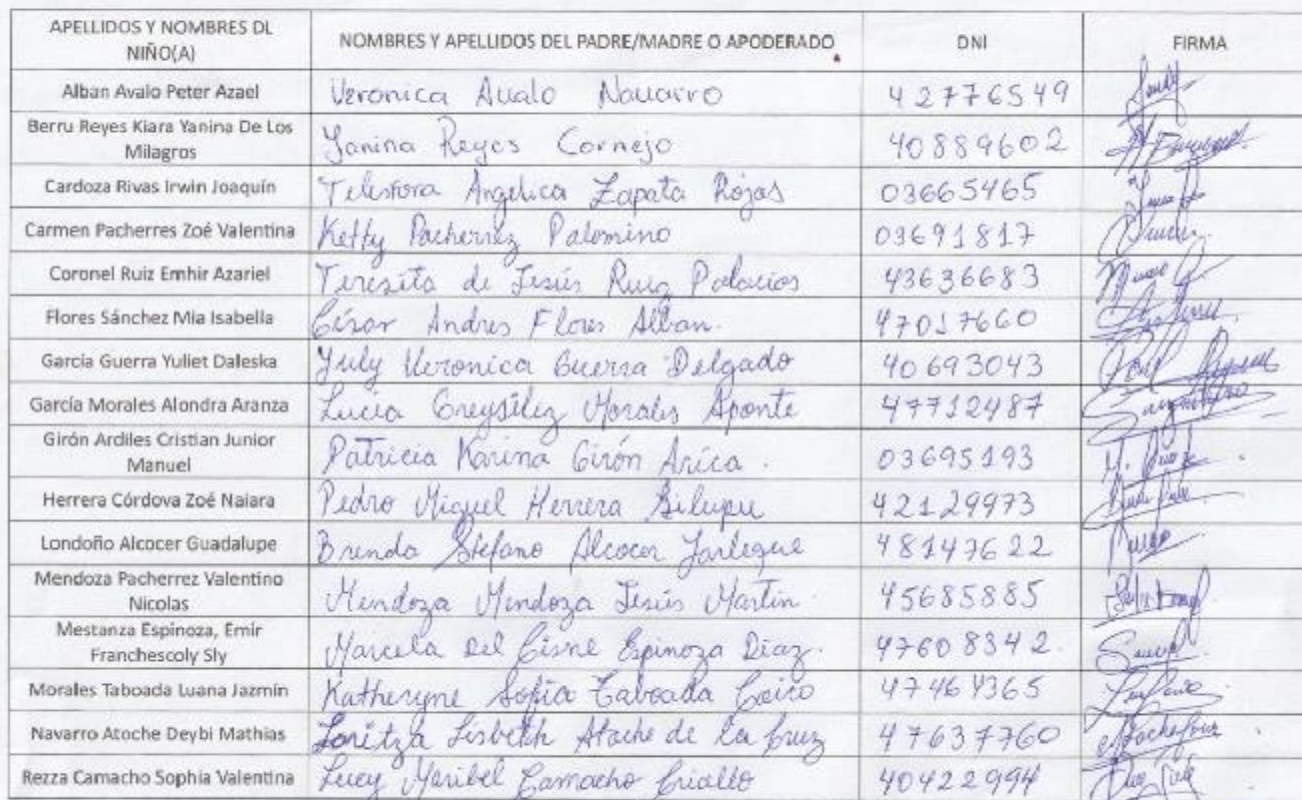 APELLIDOS Y NOMBRES DL NIÑO(A) NOMBRES Y APELLIDOS DEL PADRE/MADRE O APODERADO DNI FIRMA
Alban Avalo Peter Azael Veronica Avalo Navarro 42776549
Berru Reyes Kiara Yanina De Los Milagros Yanina Reyes Cornejo 40889602
Cardoza Rivas Irwin Joaquín Telesfora Angelica Zapata Rojas 03665465
Carmen Pacherres Zoé Valentina Ketty Pacherrez Palomino 03691817
Coronel Ruiz Emhir Azariel Teresita de Jesús Ruiz Palacios 43636683
Flores Sánchez Mia Isabella César Andres Flores Alban. 47017660
García Guerra Yuliet Daleska Yuly Veronica Guerra Delgado 40693043
García Morales Alondra Aranza Lucia Greysilez Morales Aponte 47712487
Girón Ardiles Cristian Junior Manuel Patricia Karina Girón Arica. 03695193
Herrera Córdova Zoé Naiara Pedro Miguel Herrera Silupu 42129973
Londoño Alcocer Guadalupe Brenda Stefano Alcocer Yarleque 48147622
Mendoza Pacherrez Valentino Nicolas Mendoza Mendoza Jesús Martin. 45685885
Mestanza Espinoza, Emir Franchescoly Sly Marcela del Cisne Espinoza Diaz. 47608342.
Morales Taboada Luana Jazmín Katheryne Sofia Taboada 47464365
Navarro Atoche Deybi Mathias Loritza Lisbeth Atoche de La Cruz 47637760
Rezza Camacho Sophia Valentina Lucy Maribel Camacho Criollo 40422994